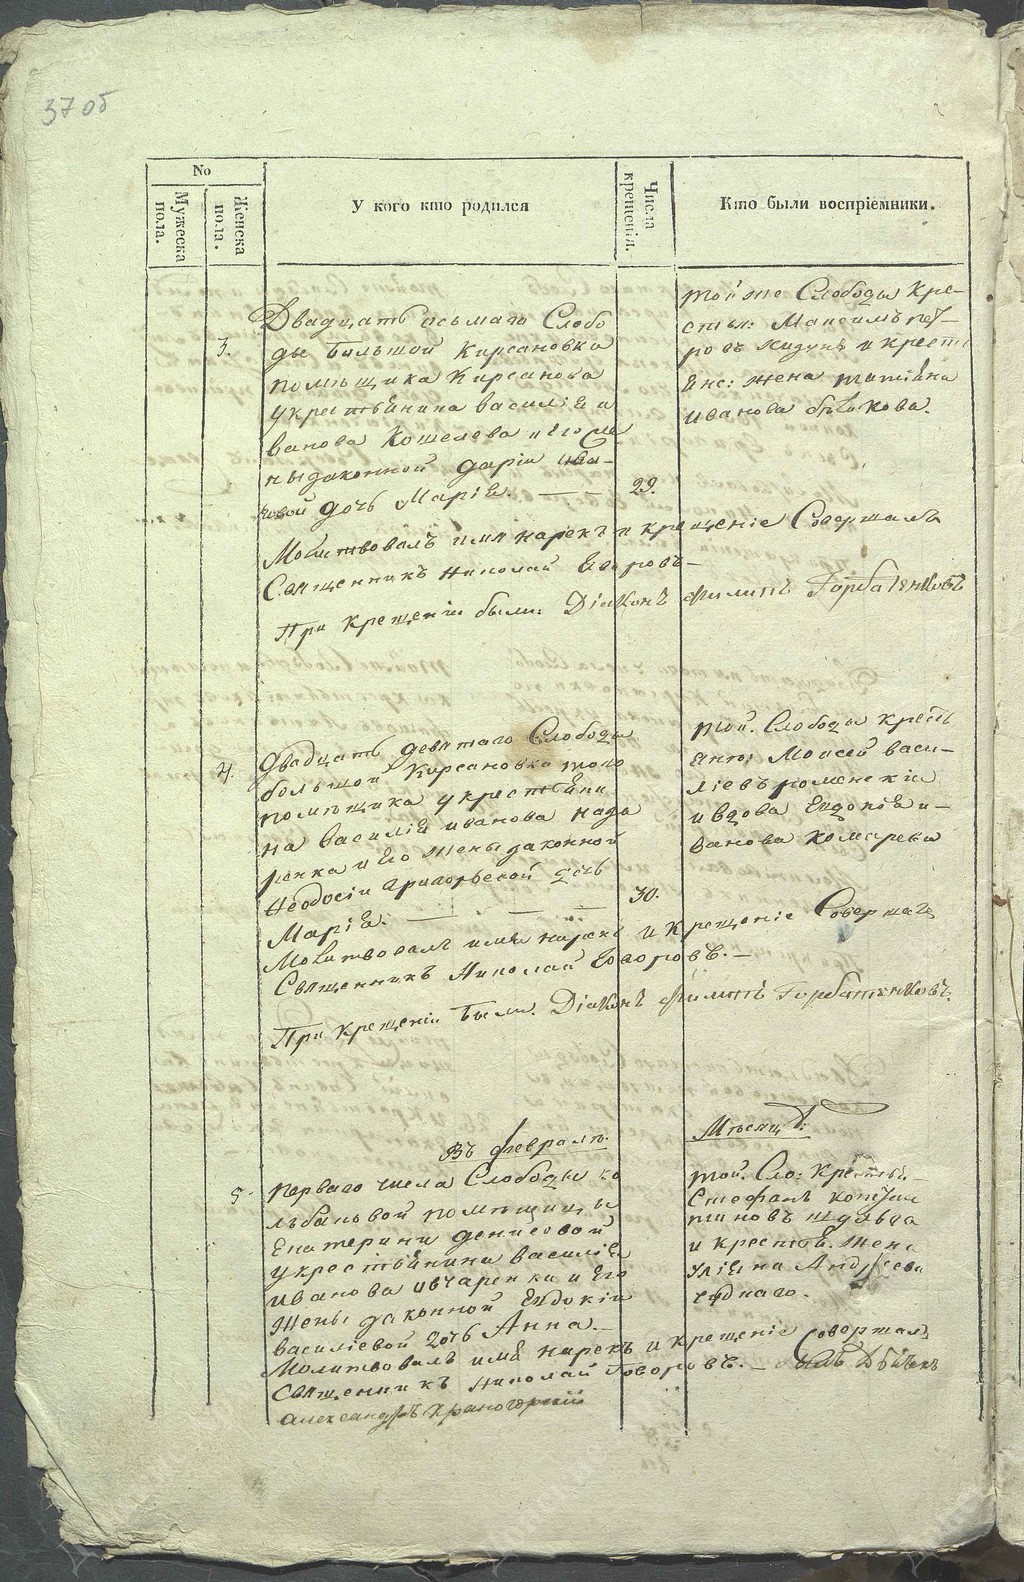 37 об
No
Мужеска пола.
Женска пола.
У кого кто родился
Числа крещенія.
Кто были воспріемники.
3.
Двадцать осьмаго Слобо
ды большой Кирсановки
помѣщика Кирсанова
укрестьянина василія и
ванова Кошелева и его же
ны законной даріи ива-
новой дочь Марія. — — 29.
тойже Слободы Кре-
стья: Максимъ пет-
ровъ и крест
янс: жена татіяна
иванова
Молитвовалъ имя нарекъ и крещеніе Совершалъ
Священникъ Николай Говоровъ —
При крещеніи были: Діаконъ Филипъ Горбатенковъ
4.
двадцать девятаго Слободы
большой Кирсановки того
помѣщика укрестьяни
на василія иванова
и его жены законной
Феодосіи григорьевой дочь
Марія. — — — 30.
той. Слободы крест
янин: Моисей васи-
ліевъ роменскій
и вдова Евдокія и-
ванова комарева
Молитвовалъ имя нарекъ и крещеніе Совершалъ
Священникъ Николай Говоровъ. —
При крещеніи были. Діаконъ Филипъ Горбатенковъ.
Въ февралѣ.
Мѣсяцѣ:
5.
перваго числа Слободы ко
льбановой помѣщицы
Екатерины денисовой
укрестьянина василія
иванова овчаренка и его
жены законной Евдокіи
василіевой дочь Анна. —
той. Сло: крестьян
Стефанъ констан
тиновъ
и крестья. жена
уліяна Андреева
Молитвовалъ имя нарекъ и крещеніе совершалъ
Священникъ Николай Говоровъ. — былъ Дьячекъ
александръ